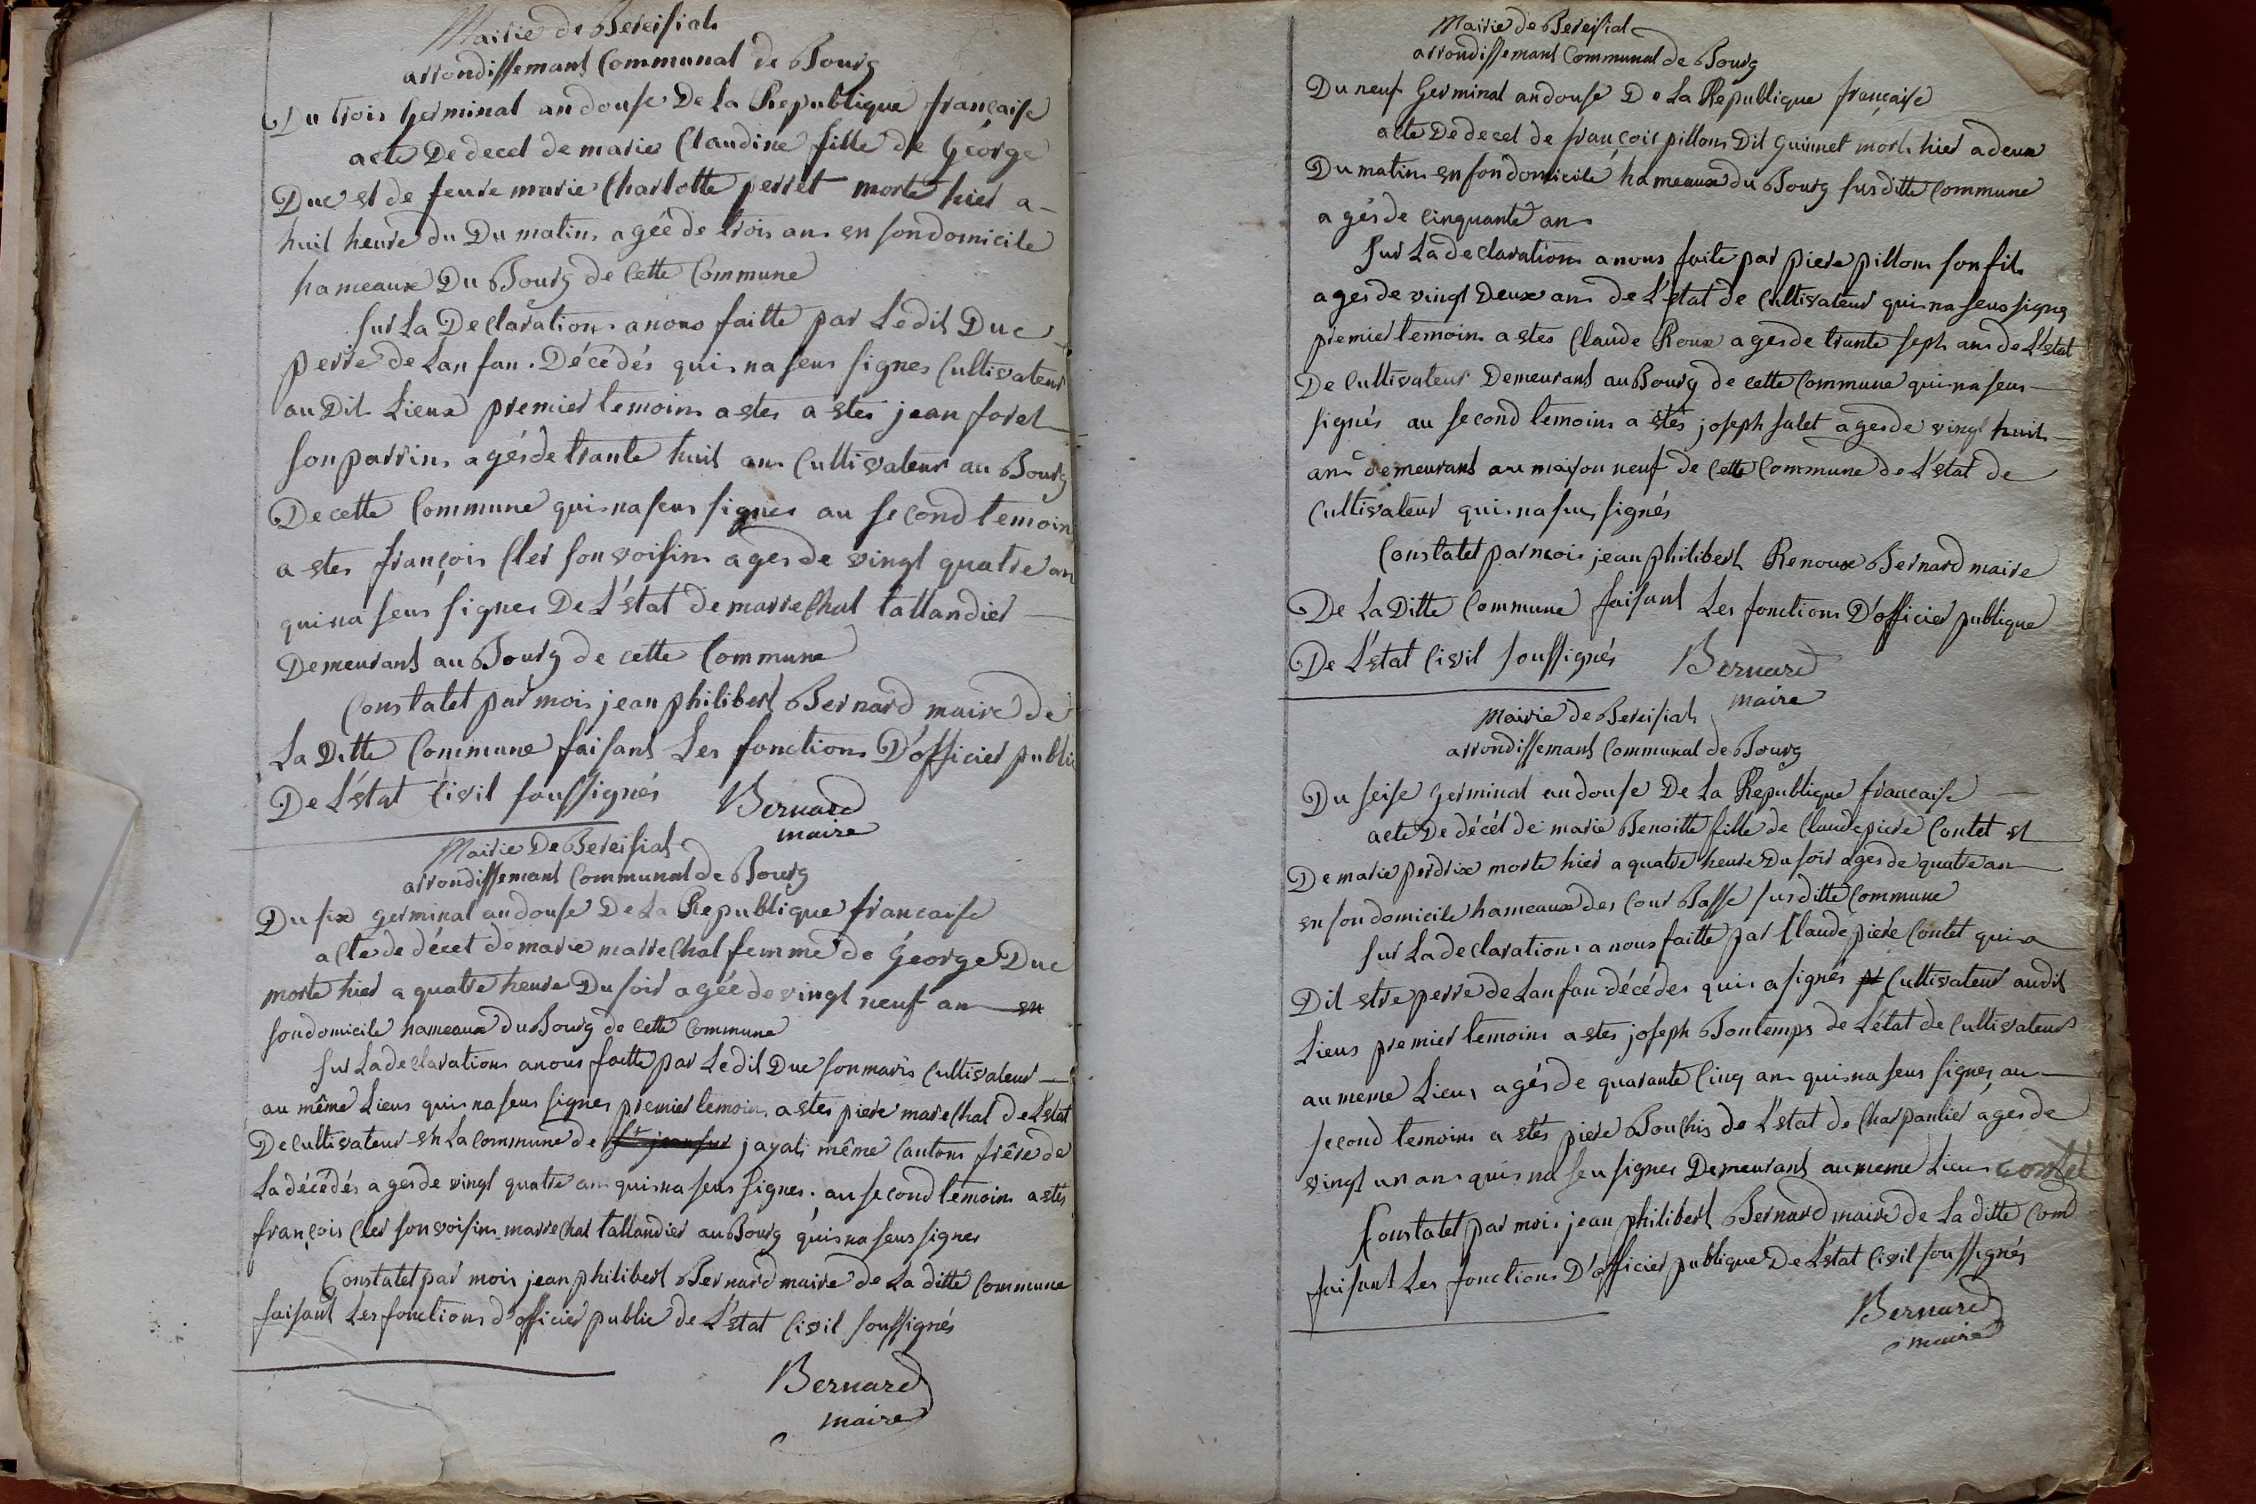 Mairie de Bereisiat
arrondissemant Communal de Bourg
Du trois germinal an douse De La Republique française
acte De decet de marie Claudine fille de George
Duc et de feure marie Charlotte perret morte hier a
huit heure du Du matin agée de trois ans en son domicile
hameaux Du Bourg de Cette Commune
sur La Declaration a nous faitte par Ledit Duc
perre de Lanfan Décédés qui na seus signes Cultivateur
au Dit Lieux premier temoins a stes a stes jean foret
son parrins agés de trante huit ans Cultivateur au Bourg
De cette Commune qui na seus signes au second temoin
a stes françois Cler son voisins ages de vingt quatre an
qui na seus signes De L'estat de marrechal tallandier
Demeurans au Bourg de cette Commune
Constatet par mois jean philibert Bernard maire de
La Ditte Commune faisans Les fonctions D'officier public
De L'estat Civil soussignés Bernard
maire
Mairie De Bereisiat
arrondissemant Communal de Bourg
Du six germinal an douse De La Republique francaise
acte de décet de marie marrechal femme de George Duc
morte hier a quatre heure Du soir agée de vingt neuf an en
son domicile hameaux du Bourg de Cette Commune
sur La declarations a nous faitte par Ledit Duc son maris Cultivateur
au même Lieus qui na seus signes premier temoins a stes piere marechal de L'estat
De Cultivateur en La commune de St jean sur jayat même Cantons frêre de
La décédés ages de vingt quatre ans qui na seus signes au second temoins a stés
françois Cler son voisins marrechal tallandier au Bourg qui na seus signes
Constatet par mois jean philibert Bernard maire de La ditte Commune
faisant Les fonctions d'officier public de L'estat Civil soussignés
Bernard
maire
Mairie de Bereisiat
arrondissemant Communal de Bourg
Du neuf Germinal an douse De La Republique française
acte De decet de françois pillons Dit Guiunet mort hier a deux
Du matins en son domicile hameaux du Bourg susditte Commune
agés de Cinquante ans
sur La declarations a nous faite par piere pillons son fils
ages de vingt Deux ans de L'estat de Cultivateur qui na seus signes
premier temoins a stes Claude Roux ages de trante sept ans de L'estat
De Cultivateur Demeurans au Bourg de cette Commune qui na seus
signés au second temoins a stés joseph salet ages de vingt huit
ans demeurans au maison neuf de Cette Commune de L'estat de
Cultivateur qui na seus signés
Constatet par mois jean philibert Renoux Bernard maire
De La Ditte Commune faisans Les fonctions D'officier publique
De L'estat Civil soussignés Bernard
maire
Mairie de Bereisiat
arrondissemant Communal de Bourg
Du seise Germinal an douse De La Republique francaise
acte De décét de marie Benoitte fille de Claude piere Contet et
De marie perdrix morte hier a quatre heure Du soir ages de quatre an
en son domicile hameaux des Cour Basse susditte Commune
sur La declarations a nous faitte par Claude piere Contet qui a
Dit estre perre de Lanfan décédes qui a signés et Cultivateur au dit
Lieus premier temoins a stes joseph Bontemps de L'état de Cultivateur
au meme Lieus agés de quarante Cinq ans qui na seus signes au
second temoins a stés piere Bouchis de L'estat de Charpantier ages de
vingt un ans qui na seu signes Demeurans au meme Lieus contet
Constatet par mois jean philibert Bernard maire de La ditte Com
faisans Les fonctions D'officier publique De L'estat Civil soussignés
Bernard
maire